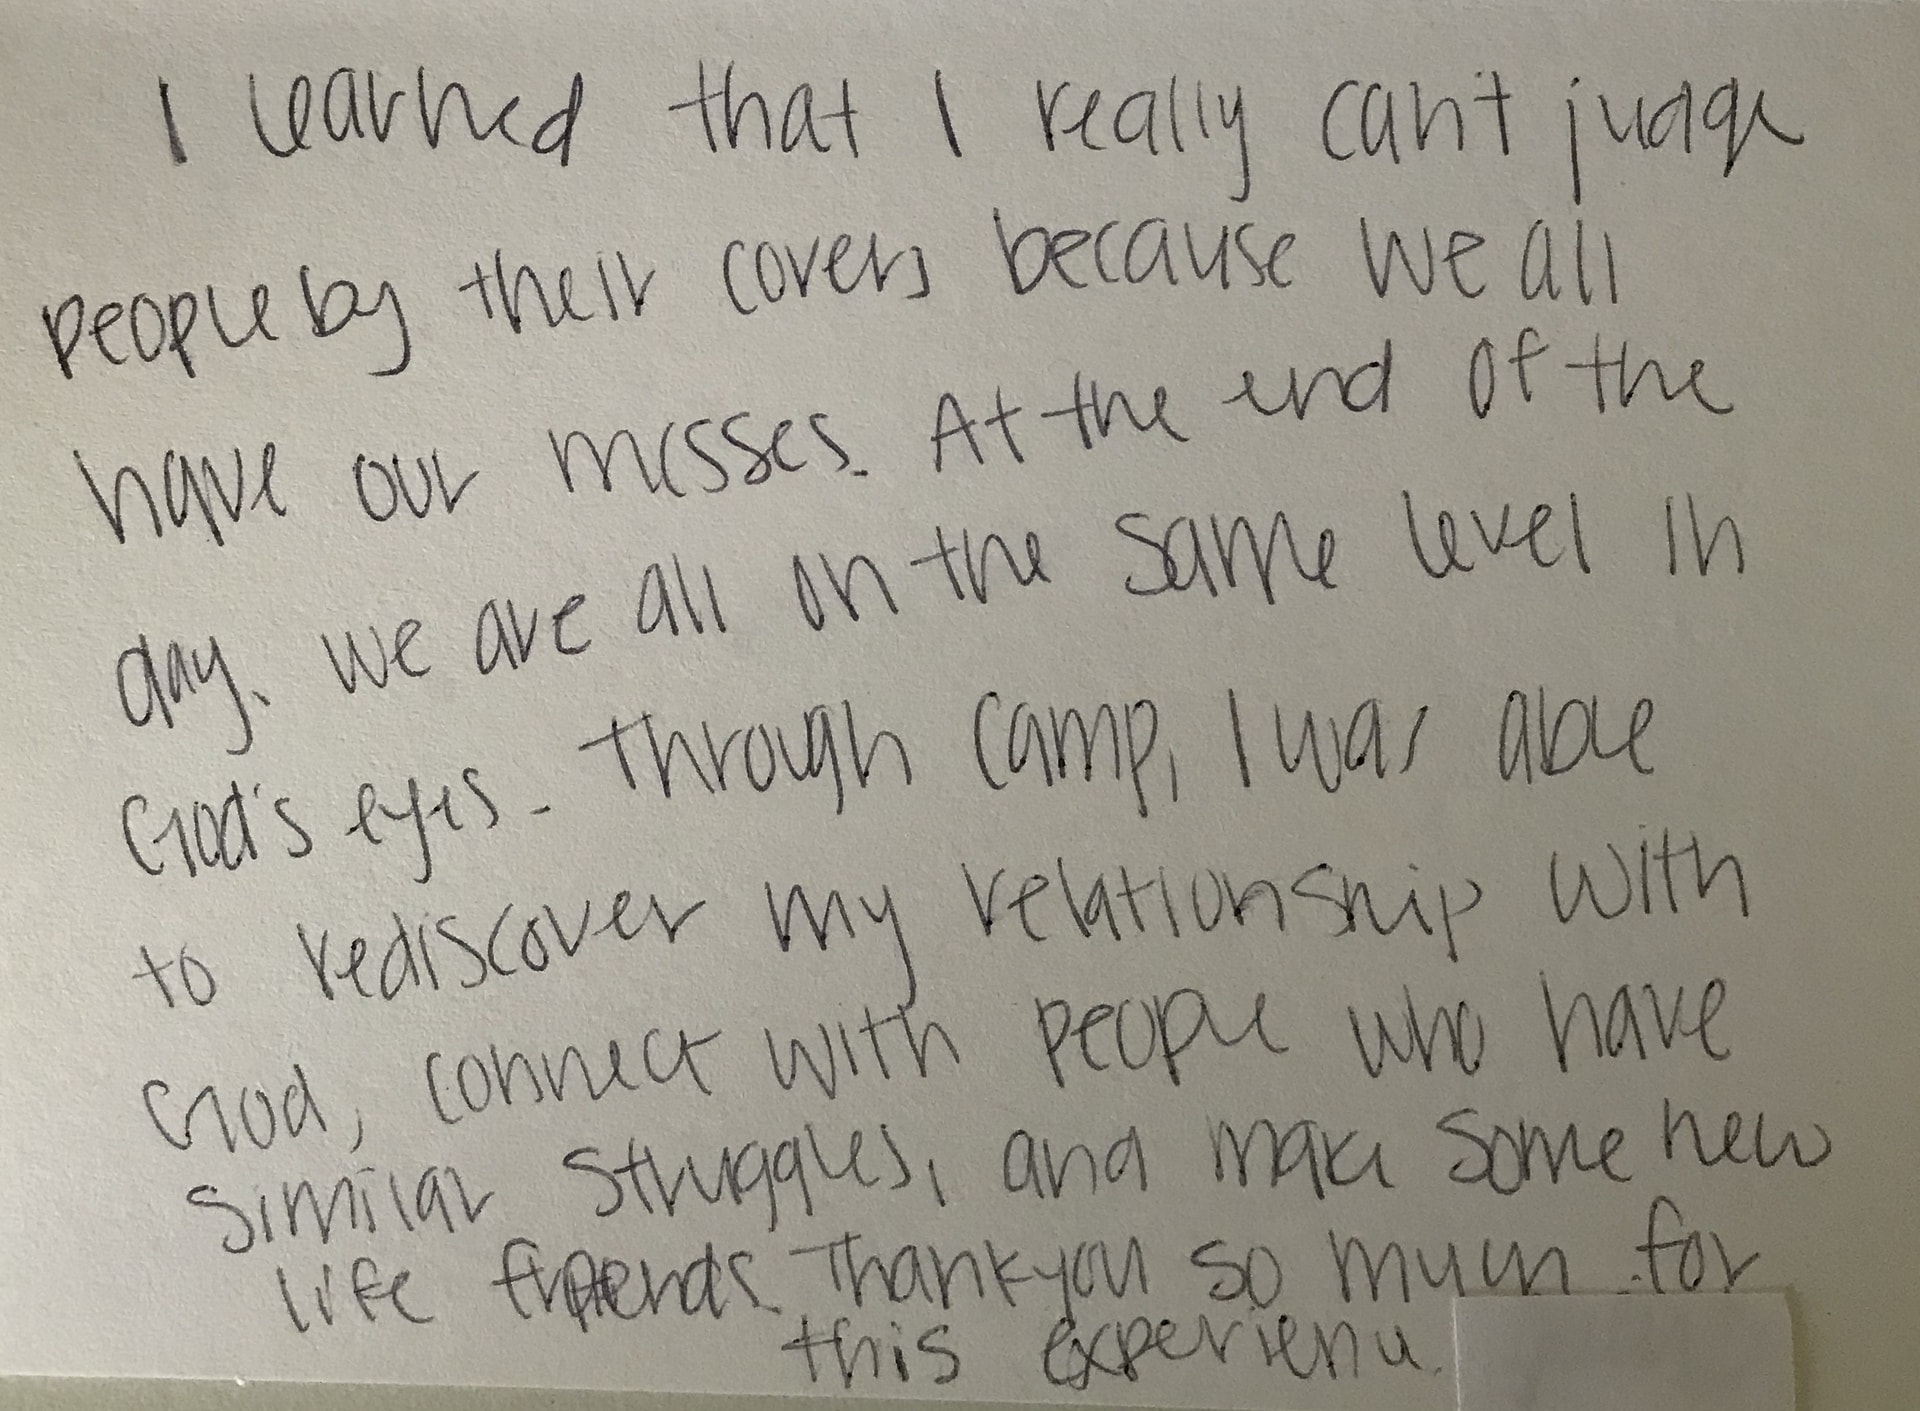 I learned that I really can't judge
people by their covers because we all
have our messes. At the end of the
day, we are all on the same level in
God's eyes. Through camp, I was able
to rediscover my relationship with
God, connect with people who have
similar struggles, and make some new
life friends. Thank you so much for
this experience.